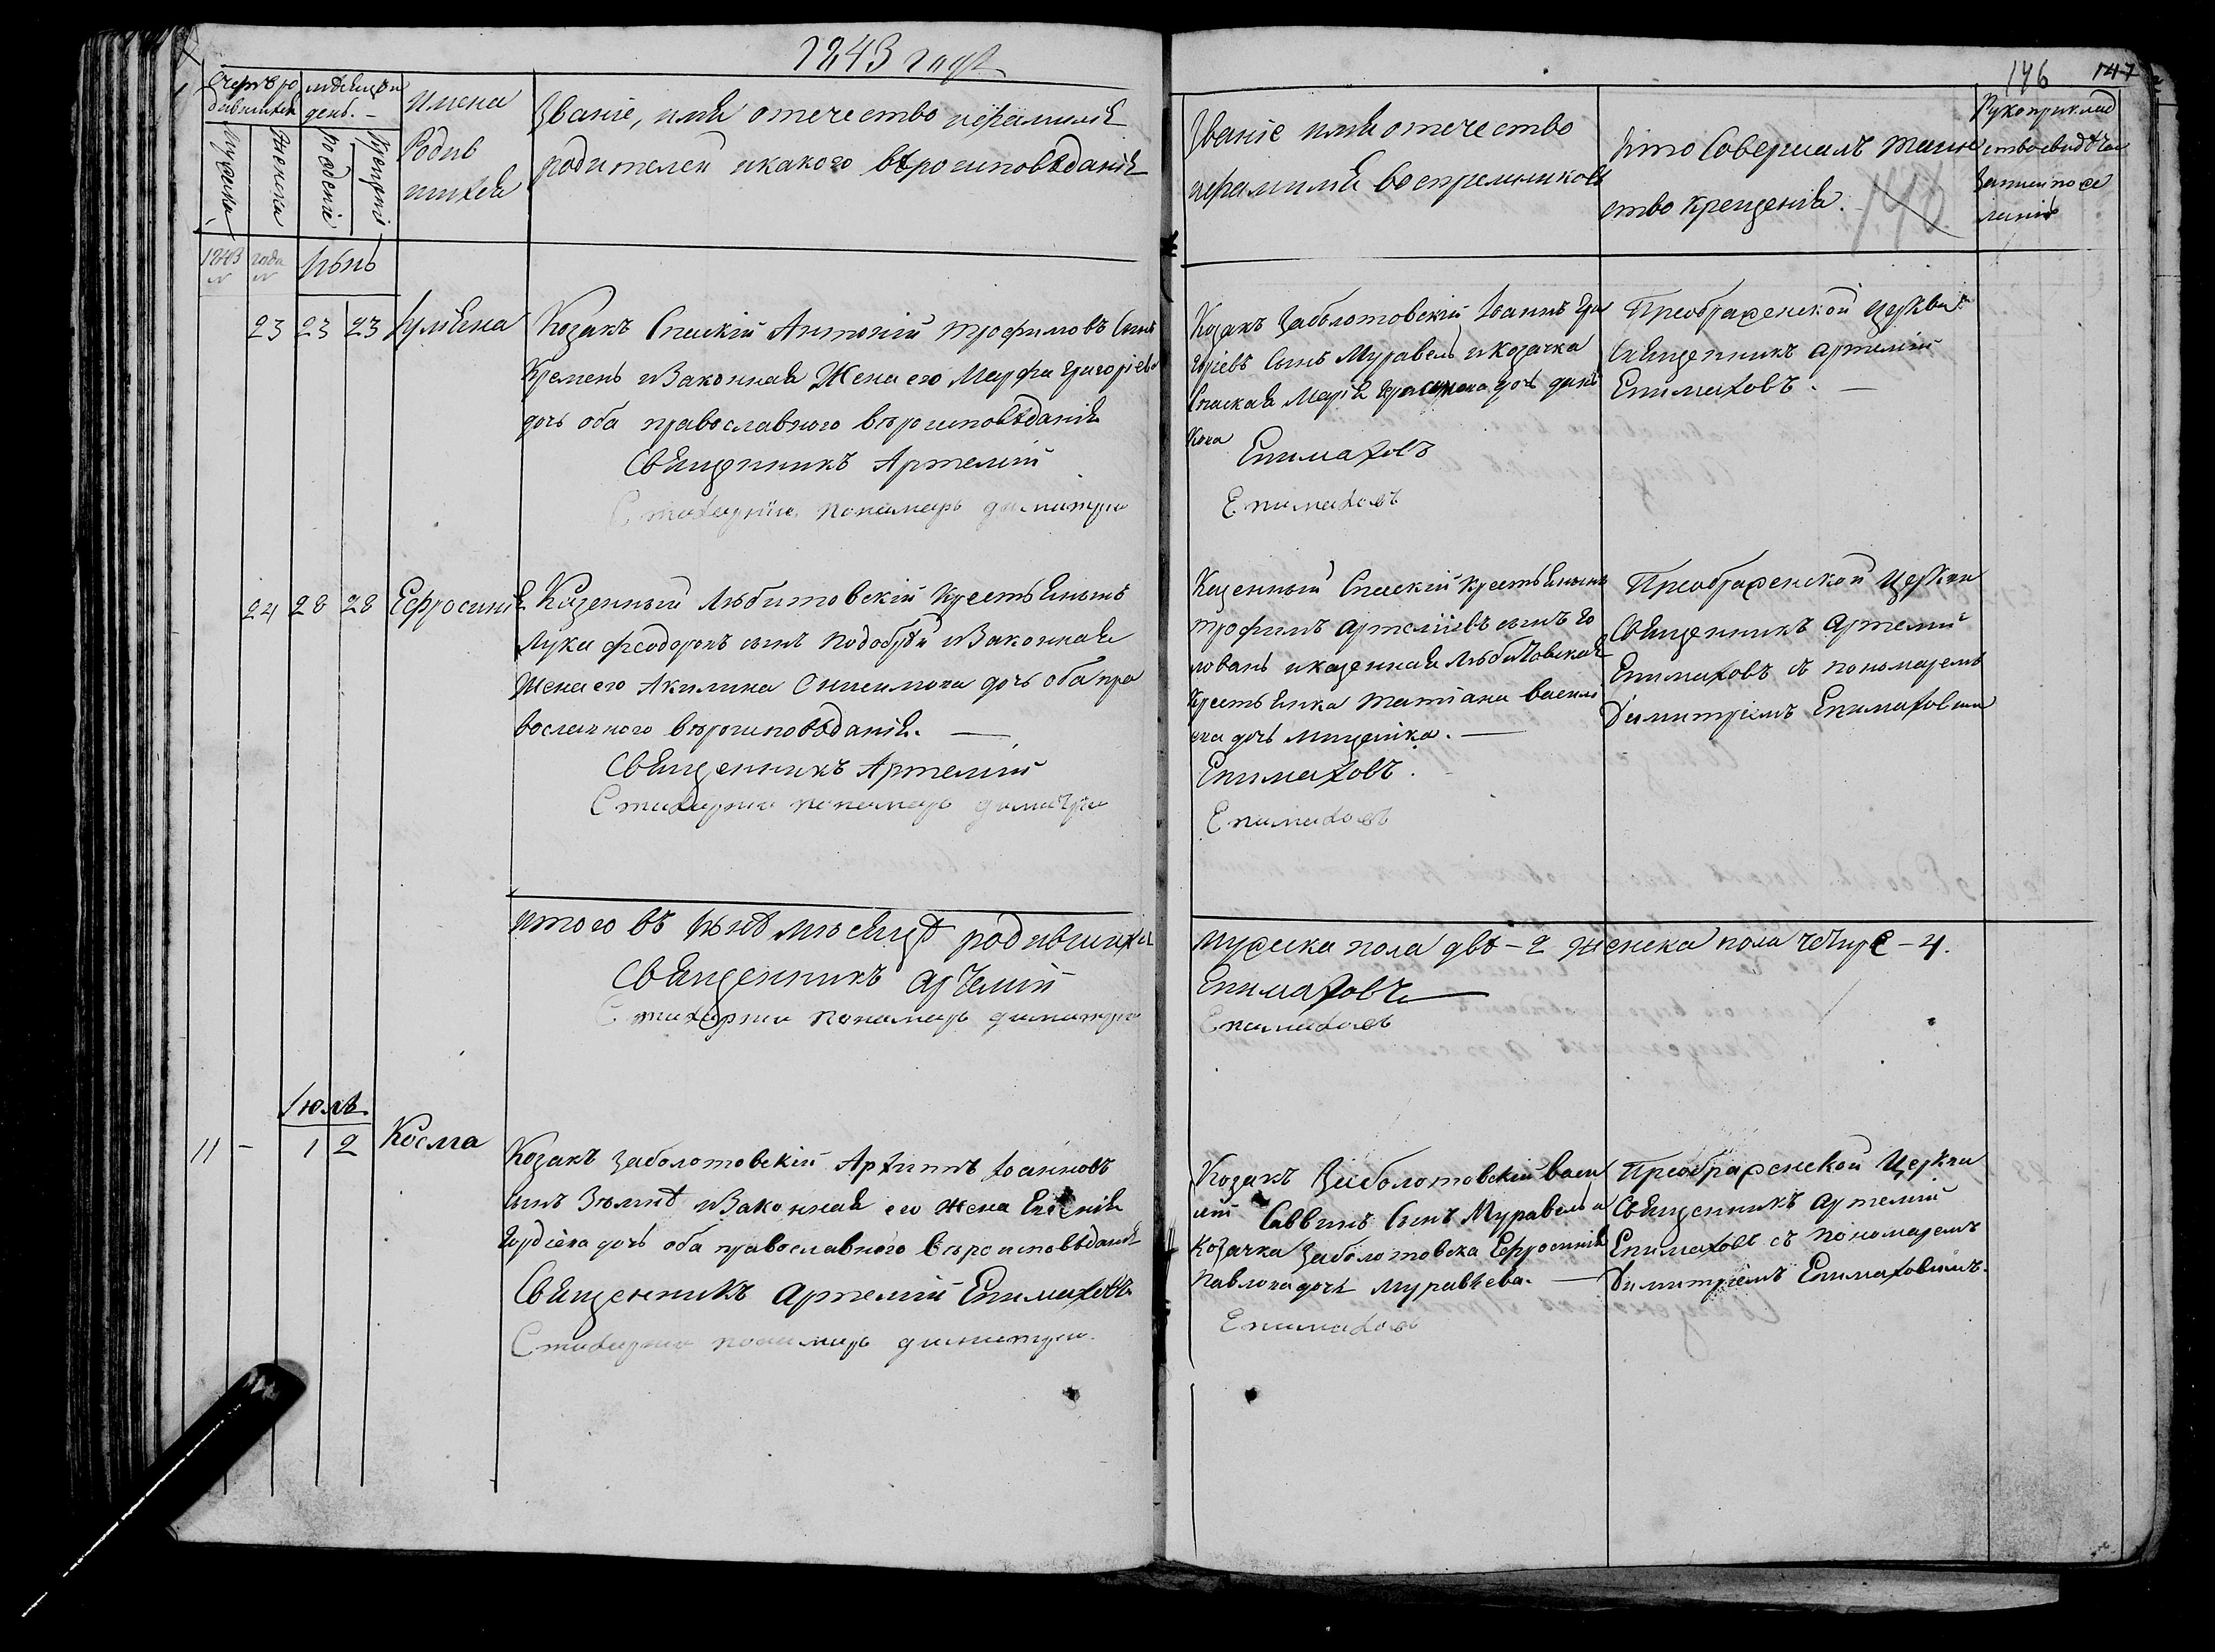 1843 года
146 147
Счетъ ро
дившихся
Мужска
Женска
мѣсяцъ и
день.
Рожденіе
Крещеніе
Имена
Родив
шихся
Званіе, имя отечество ифамилія
родителей икакого вѣроисповѣданія
Званіе имя отечество
ифамилія воспреемниковъ
Кто Совершалъ таин
ство крещенія.
148
Рукоприклад
ство свидѣте
записи по же
ланію
1843 года
Іюнь
23 23 23 Іуліяна
Козакъ Спаскій Антоній Трофимовъ Сынъ
Кремень иЗаконная Жена его Марфа Григоріева
дочь оба православного вѣроисповѣданія
Священникъ Артемій
Стихарній пономарь димитрій
Козакъ Заболотовскій Іоаннъ Гри
горіевъ Сынъ Муравель и Козачка
Спаская Марія дочь
Епимаховъ
Епимаховъ
Преображенской Церкви
Священникъ Артемій
Епимаховъ.
24 28 28 Ефросинія
Казенный Любитовскій Крестьянинъ
Лука Феодоровъ сынъ иЗаконная
Жена его Акилина Онисимова дочь оба пра
вославного вѣроисповѣданія.
Священникъ Артемій
Стихарній пономарь димитрій
Казенный Спаскій Крестьянинъ
Трофимъ Артеміевъ сынъ Го
ловань иказенная Любитовская
Крестьянка Татіана Василі
ева дочь
Епимаховъ.
Епимаховъ
Преображенской Церкви
Священникъ Артемій
Епимаховъ съ пономаремъ
Димитріемъ Епимаховимъ
Итого въ Іюнѣ мѣсяцѣ родившихся
Священникъ Артемій
Стихарній пономарь димитрій
мужска пола двѣ - 2 женска пола четыре - 4.
Епимаховъ
Епимаховъ
Іюль
11 - 1 2 Косма
Козакъ Заболотовскій Архиппъ Іоанновъ
сынъ иЗаконная его Жена Евгенія
Гордіева дочь оба православного вѣроисповѣданія
Священникъ Артемій Епимаховъ
Стихарній пономарь димитрій
Козакъ Заболотовскій Васи
лій Саввинъ Сынъ Муравель и
Козачка Заболотовска Ефросинія
Павлова дочь Муравіева.
Епимаховъ
Преображенской Церкви
Священникъ Артемій
Епимаховъ съ пономаремъ
Димитріемъ Епимаховимъ.